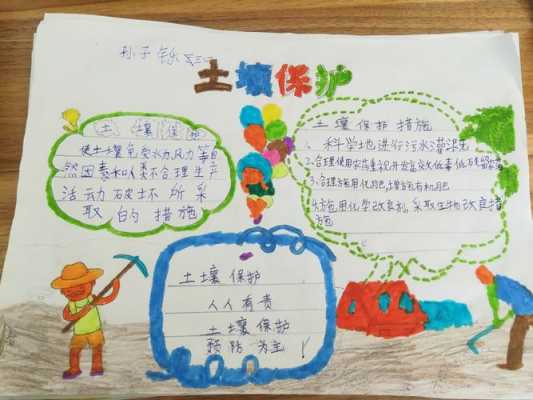 孙子铄 五三一
土壤保护
土壤保护
使土壤免受水力、风力等自
然因素和人类不合理生产
活动破坏所采
取的措施
土壤保护措施
、科学地进行污水灌溉
2、合理使用农药重视开发高效低毒低残留农药
3、合理施用化肥,增施有机肥
4.施用化学改良剂,采取生物改良措
施
土壤保护
人人有责
土壤保护
预防为主!